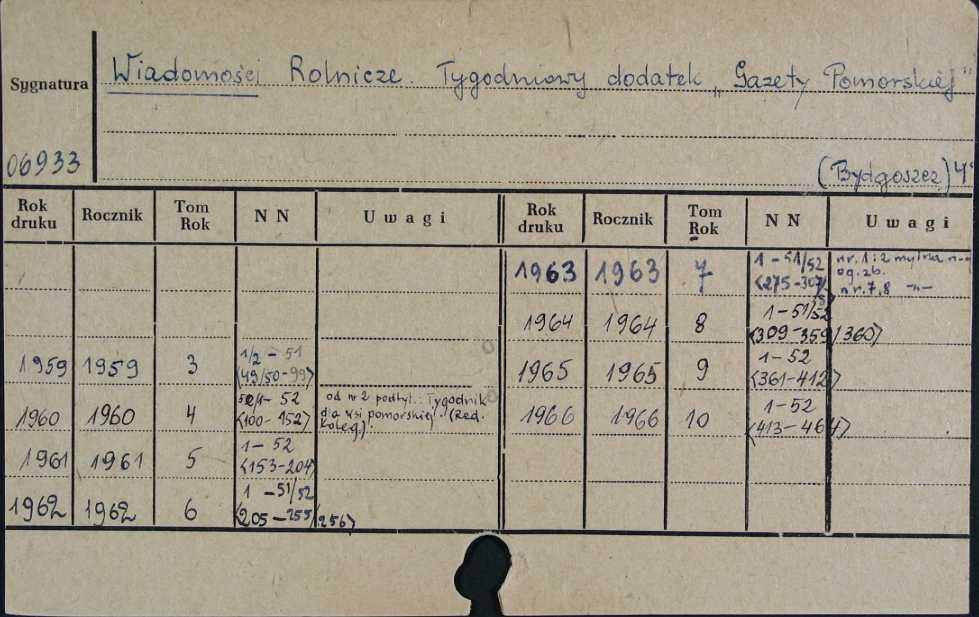 Sygnatura
Wiadomości Rolnicze. Tygodniowy dodatek „Gazety Pomorskiej"
06933
(Bydgoszcz) 4°
Rok druku Rocznik Tom Rok NN Uwagi Rok druku Rocznik Tom Rok NN Uwagi
1963 1963 7 1-51/52 nr. 1 i 2 mylna
og. zb.
<275-307/ nr. 7,8 -"-
1964 1964 8 1-51/52
<309-359/360>
1959 1959 3 1/2-51
<49/50-99>
1965 1965 9 1-52
<361-412>
1960 1960 4 1-52 od nr 2 podtyt.: Tygodnik
<100-152> dla wsi pomorskiej. (Red.
Koleg).
1966 1966 10 1-52
<413-464>
1961 1961 5 1-52
<153-204>
1962 1962 6 1-51/52
<205-255/256>